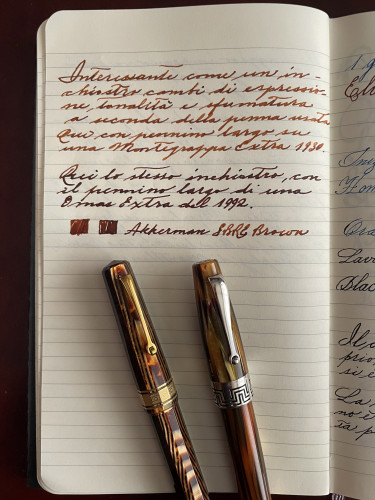 Interessante come un in-
chiostro cambi di espressio-
ne, tonalità e sfumatura
a seconda della penna usata
Qui con pennino largo su
una Montegrappa Extra 1930.
Qui lo stesso inchiostro, con
il pennino largo di una
Omas Extra del 1992.
Akkerman SBRE Brown
Il
si è
La